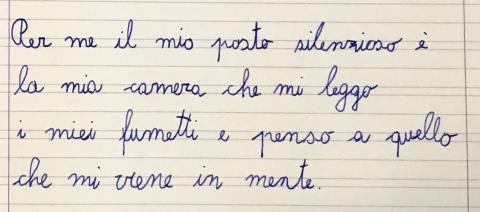 Per me il mio posto silenzioso è
la mia camera che mi leggo
i miei fumetti e penso a quello
che mi viene in mente.